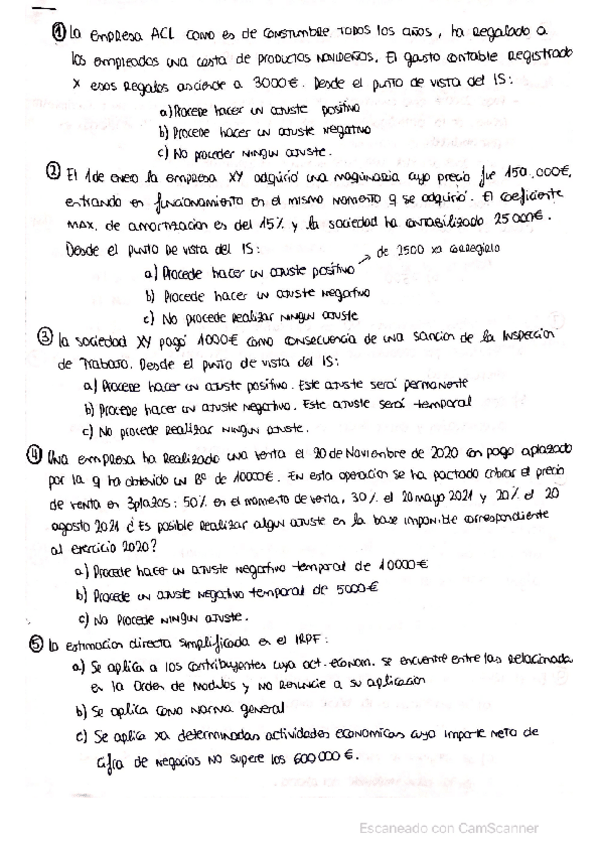 ① La Empresa ACL como es de constumbre todos los años, ha regalado a
los empleados una cesta de productos navideños. El gasto contable registrado
x esos regalos asciende a 3000€. Desde el punto de vista del IS:
a) Procede hacer un ajuste positivo
b) Procede hacer un ajuste negativo
c) No proceder ningun ajuste.
② El 1 de enero la empresa XY adquirió una maquinaria cuyo precio fue 150.000€,
entrando en funcionamiento en el mismo momento q se adquirió. El coeficiente
max. de amortizacion es del 15% y la sociedad ha contabilizado 25000€.
Desde el punto de vista del IS:
a) Procede hacer un ajuste positivo → de 2500 xa corregirlo
b) Procede hacer un ajuste negativo
c) No procede realizar ningun ajuste
③ La sociedad XY pagó 1000€ como consecuencia de una sancion de la Inspeccion
de Trabajo. Desde el punto de vista del IS:
a) Procede hacer un ajuste positivo. Este ajuste será permanente
b) Procede hacer un ajuste negativo. Este ajuste será temporal
c) No procede realizar ningun ajuste.
④ Una empresa ha realizado una venta el 20 de Noviembre de 2020 con pago aplazado
por la q ha obtenido un Bº de 10000€. En esta operacion se ha pactado cobrar el precio
de venta en 3 plazos: 50% en el momento de venta, 30% el 20 mayo 2021 y 20% el 20
agosto 2021 ¿Es posible realizar algun ajuste en la base imponible correspondiente
al ejercicio 2020?
a) Procede hacer un ajuste negativo temporal de 10000€
b) Procede un ajuste negativo temporal de 5000€
c) No procede ningun ajuste.
⑤ La estimacion directa simplificada en el IRPF:
a) Se aplica a los contribuyentes cuya act. econom. se encuentre entre las relacionada
en la Orden de Modulos y no renuncie a su aplicación
b) Se aplica como norma general
c) Se aplica xa determinadas actividades economicas cuyo importe neto de
cifra de negocios no supere los 600000€.
Escaneado con CamScanner